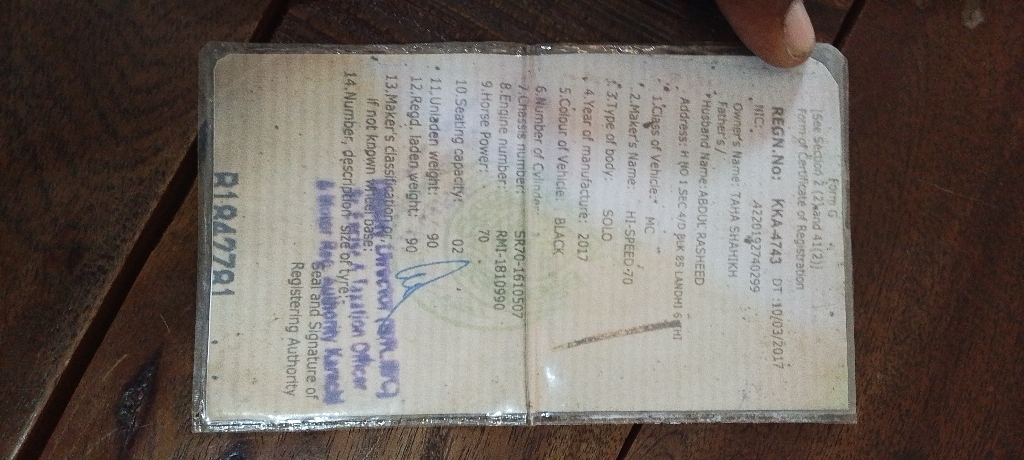 Form G
[See Section 2 (2) and 41(2)]
Form of Certificate of Registration
REGN No: KKA-4743 DT :10/03/2017
NIC: A220192740299
Owner's Name: TAHA SHAHIKH
Father's /
Husband Name: ABDUL RASHEED
Address: H NO 1 SEC 4/D BLK 85 LANDHI 6
1.Class of Vehicle: MC
2.Maker's Name: HI-SPEED-70
3.Type of body: SOLO
4.Year of manufacture: 2017
5.Colour of Vehicle: BLACK
6.Number of Cylinder:
7.Chassis number: SR70-1610507
8.Engine number: RMI-1810990
9.Horse Power: 70
10.Seating capacity: 02
11.Unladen weight: 90
12.Regd. laden weight: 90
13.Maker's classification or,
if not known wheel base:
14.Number, description size of tyre:
Taxation Officer
Reg. Authority Karachi
Seal and Signature of
Registering Authority
R1847791